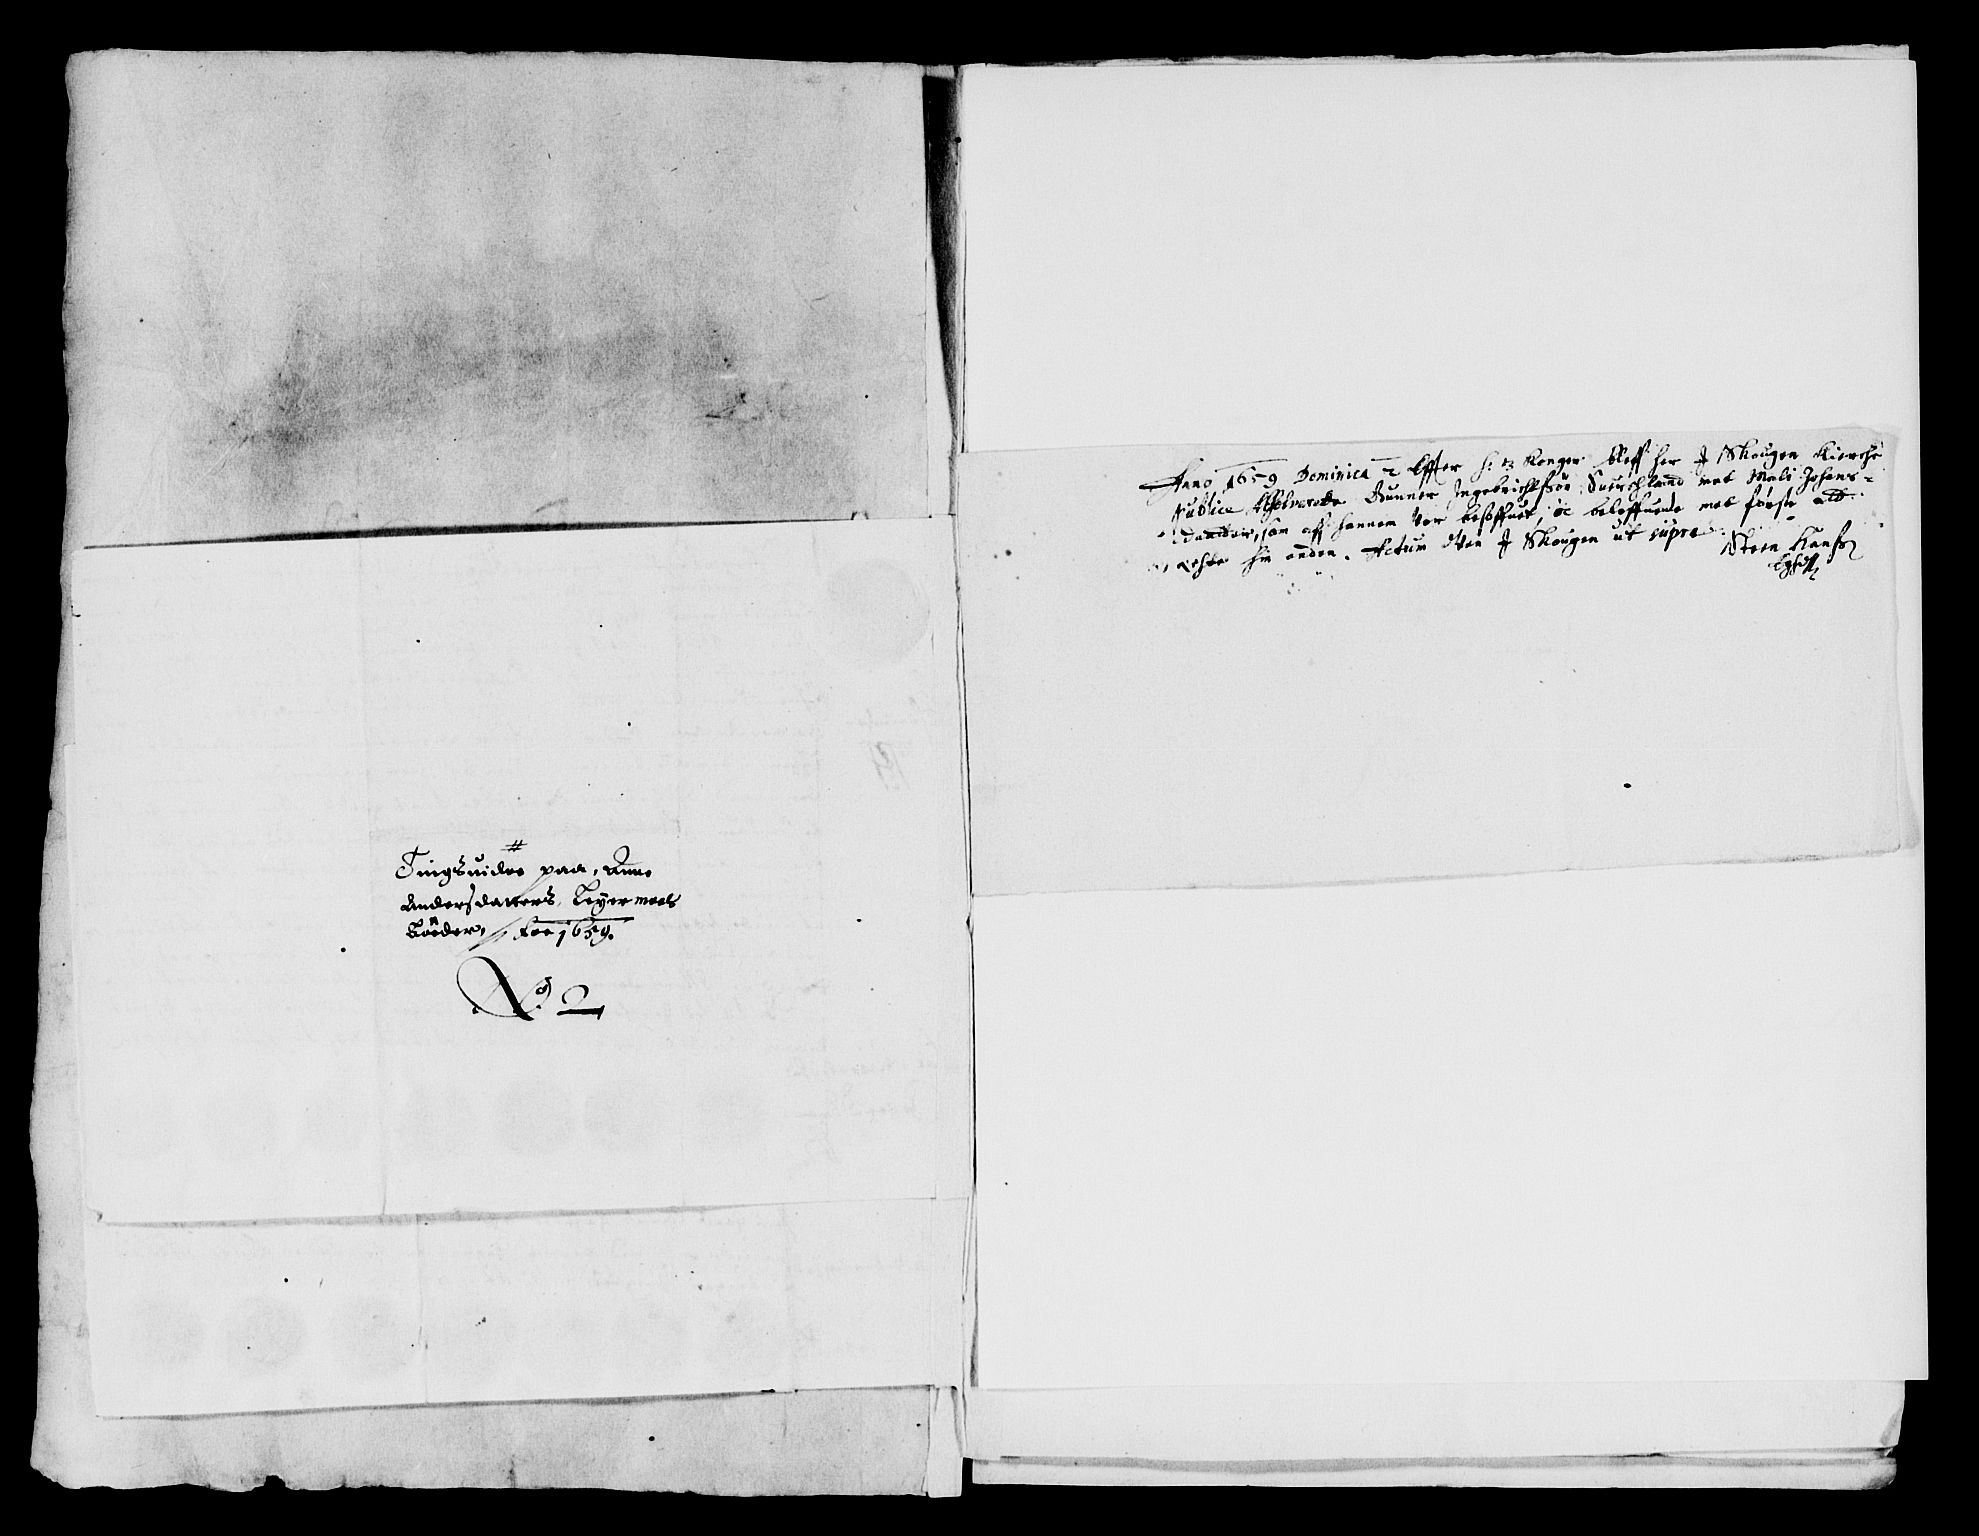 Tingsuidne paa, Anne
Andersdatters, Leyermaals
Böeder, for 1659.
No 2
Anno 1659 Dominica 2 Effter h: 3 Konger bleff her J Skougen Kierche
publice Absolverede Gunner Ingebrichtsøn land met Mali Johans=
som aff hannem var besoffuet, oc beloffuede met første att
echte hin anden. Actum J Skougen ut supra
Steen Hansß
Eghdt